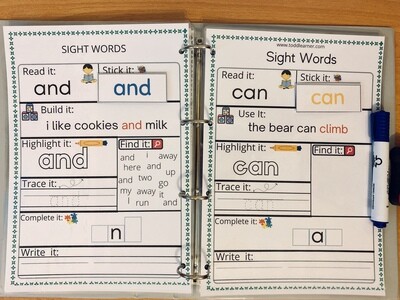 SIGHT WORDS
Read it:
Stick it:
and
and
Build it:
i like cookies and milk
Highlight it:
Find it:
and
and i away
here and up
and two go
my away it
i run and
Trace it:
Complete it:
n
Write it:
www.toddlearner.com
Sight Words
Read it:
Stick it:
can
can
Use It:
the bear can climb
Highlight it:
Find it:
can
Trace it:
Complete it:
a
Write it: